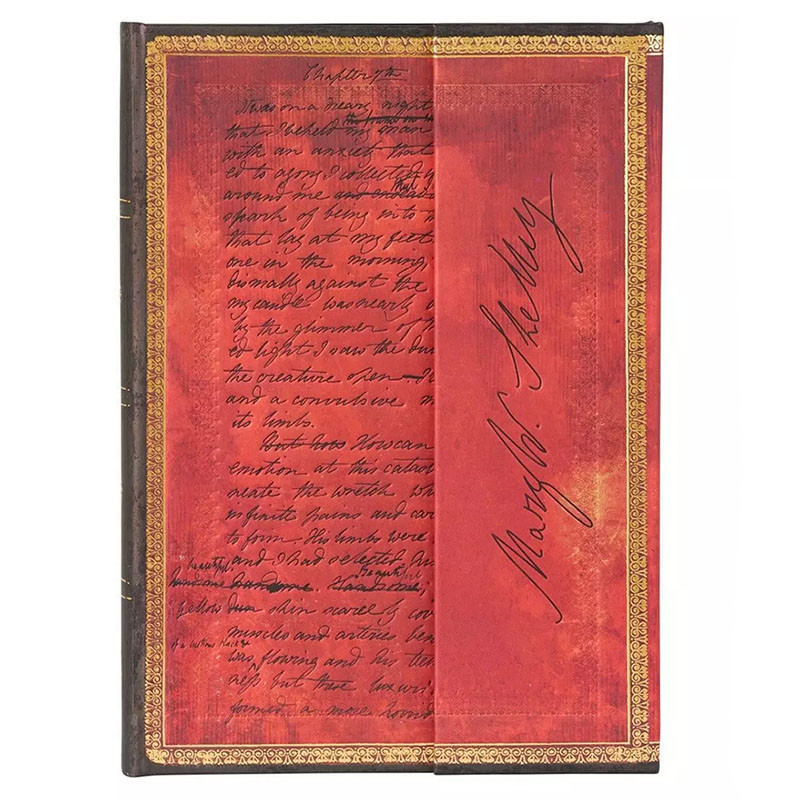 Chapter 7th
It was on a dreary night
the frame on
that I beheld my man
with an anxiety that
ed to agony I collected
around me and endeavo
that
spark of being into
that lay at my feet
one in the morning,
dismally against the
my candle was nearly
by the glimmer of
ed light I saw the du
the creature open. I
and a convulsive m
its limbs.
But how How can
emotion at this catas
neate the wretch wh
infinite pains and car
to form. His limbs were
and I had selected
beautiful
Beautiful
handsome handsome. Handsome,
yellow dun skin scarcely cov
of a lustrous black &
muscles and arteries ben
was flowing and his tee
ness but these luxuri
formed a more
Mary W. Shelley